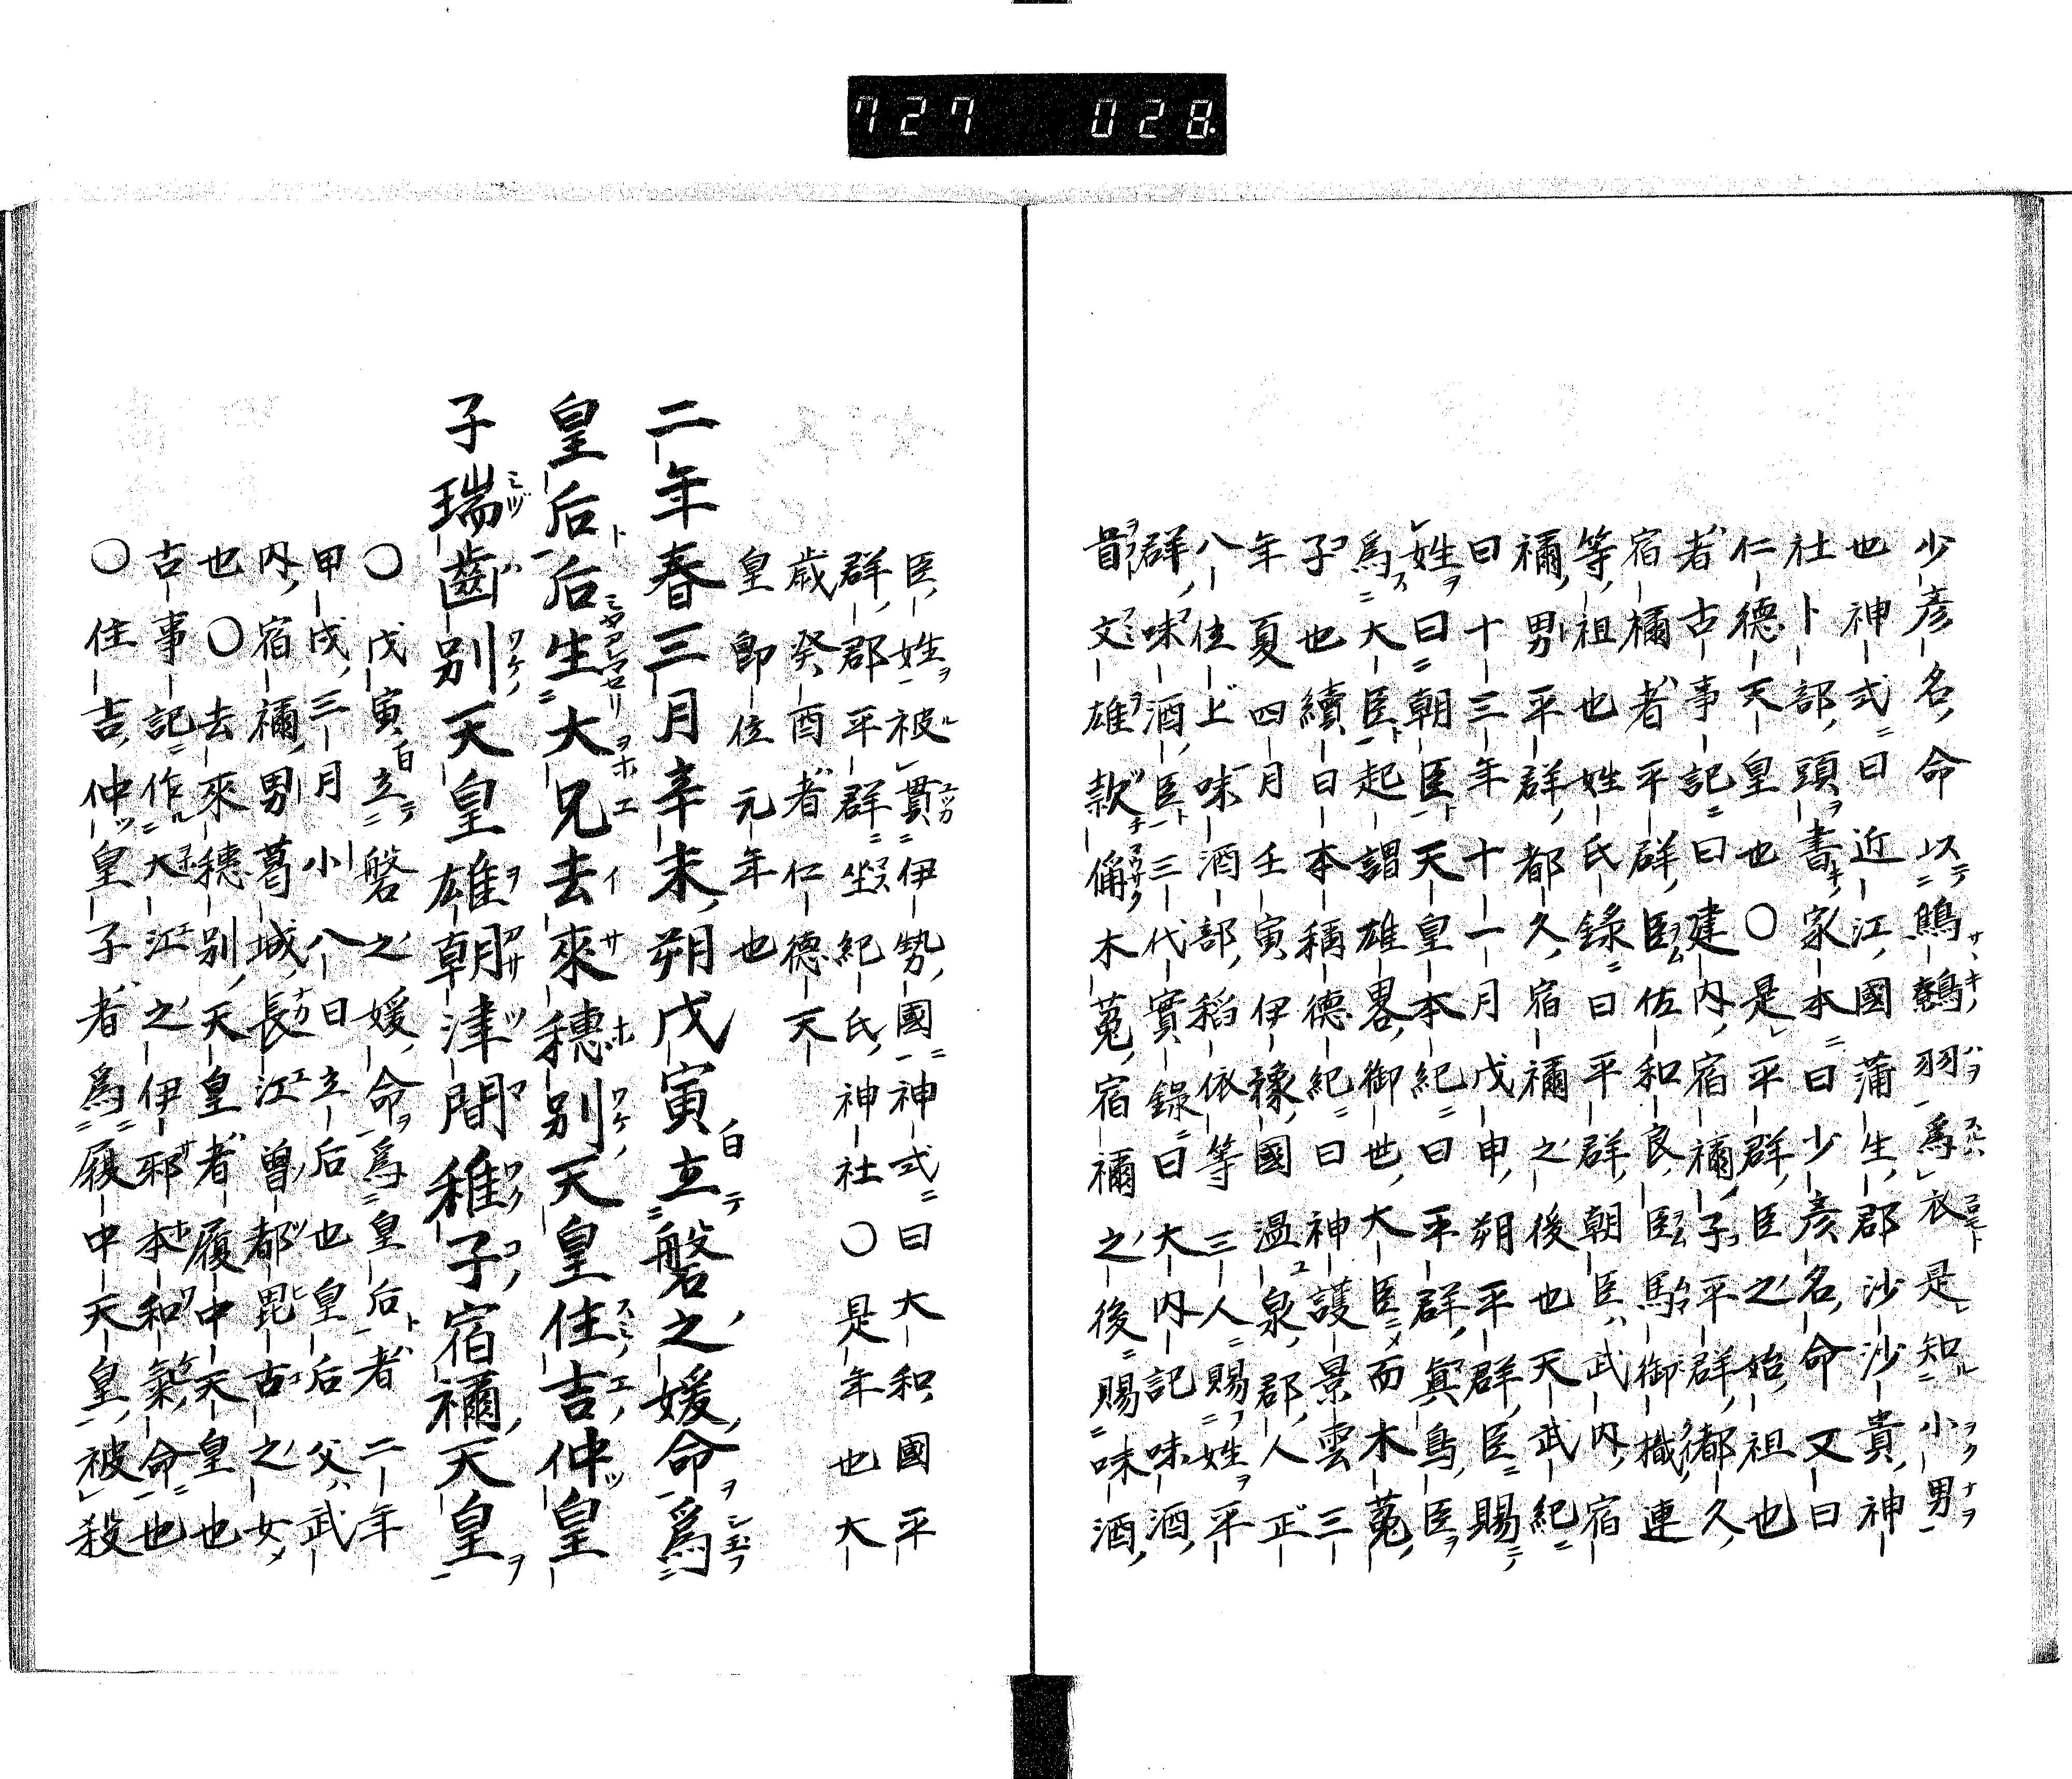 727 028
少彦名命以鷦鷯羽爲衣是知小男
也神式曰近江國蒲生郡沙沙貴神
社卜部頭書家本曰少彦名命又曰
仁德天皇也〇是平群臣之始祖也
者古事記曰建内宿禰子平群都久
宿禰者平群臣佐和良臣馬御樴連
等祖也姓氏錄曰平群朝臣武内宿
禰男平群都久宿禰之後也天武紀
曰十三年十一月戊申朔平群臣賜
姓曰朝臣天皇本紀曰平群眞鳥臣
爲大臣起謂雄畧御世大臣而木菟
子也續日本稱德紀曰神護景雲三
年夏四月壬寅伊豫國温泉郡人正
八位上味酒部稻依等三人賜姓平
群味酒臣三代實錄曰大内記味酒
首文雄款偁木菟宿禰之後賜味酒
臣姓被貫伊勢國神式曰大和國平
群郡平群坐紀氏神社〇是年也大
歳癸酉者仁德天
皇卽位元年也
二年春三月辛未朔戊寅立磐之媛命爲
皇后后生大兄去來穗別天皇住吉仲皇
子瑞齒別天皇雄朝津間稚子宿禰天皇
〇戊寅立磐之媛命爲皇后者二年
甲戌三月小八日立后也皇后父武
内宿禰男葛城長江曾都毘古之女
也〇去來穗別天皇者履中天皇也
古事記作大江之伊邪本和氣命也
〇住吉仲皇子者爲履中天皇被殺